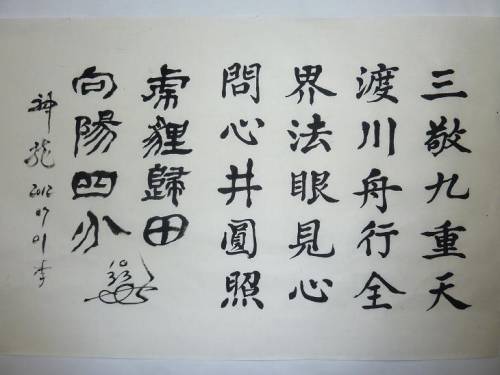 三敬九重天
渡川舟行全
界法眼見心
問心井圓照
虏貍歸田
向陽四小
神龍 2012 07 01 李